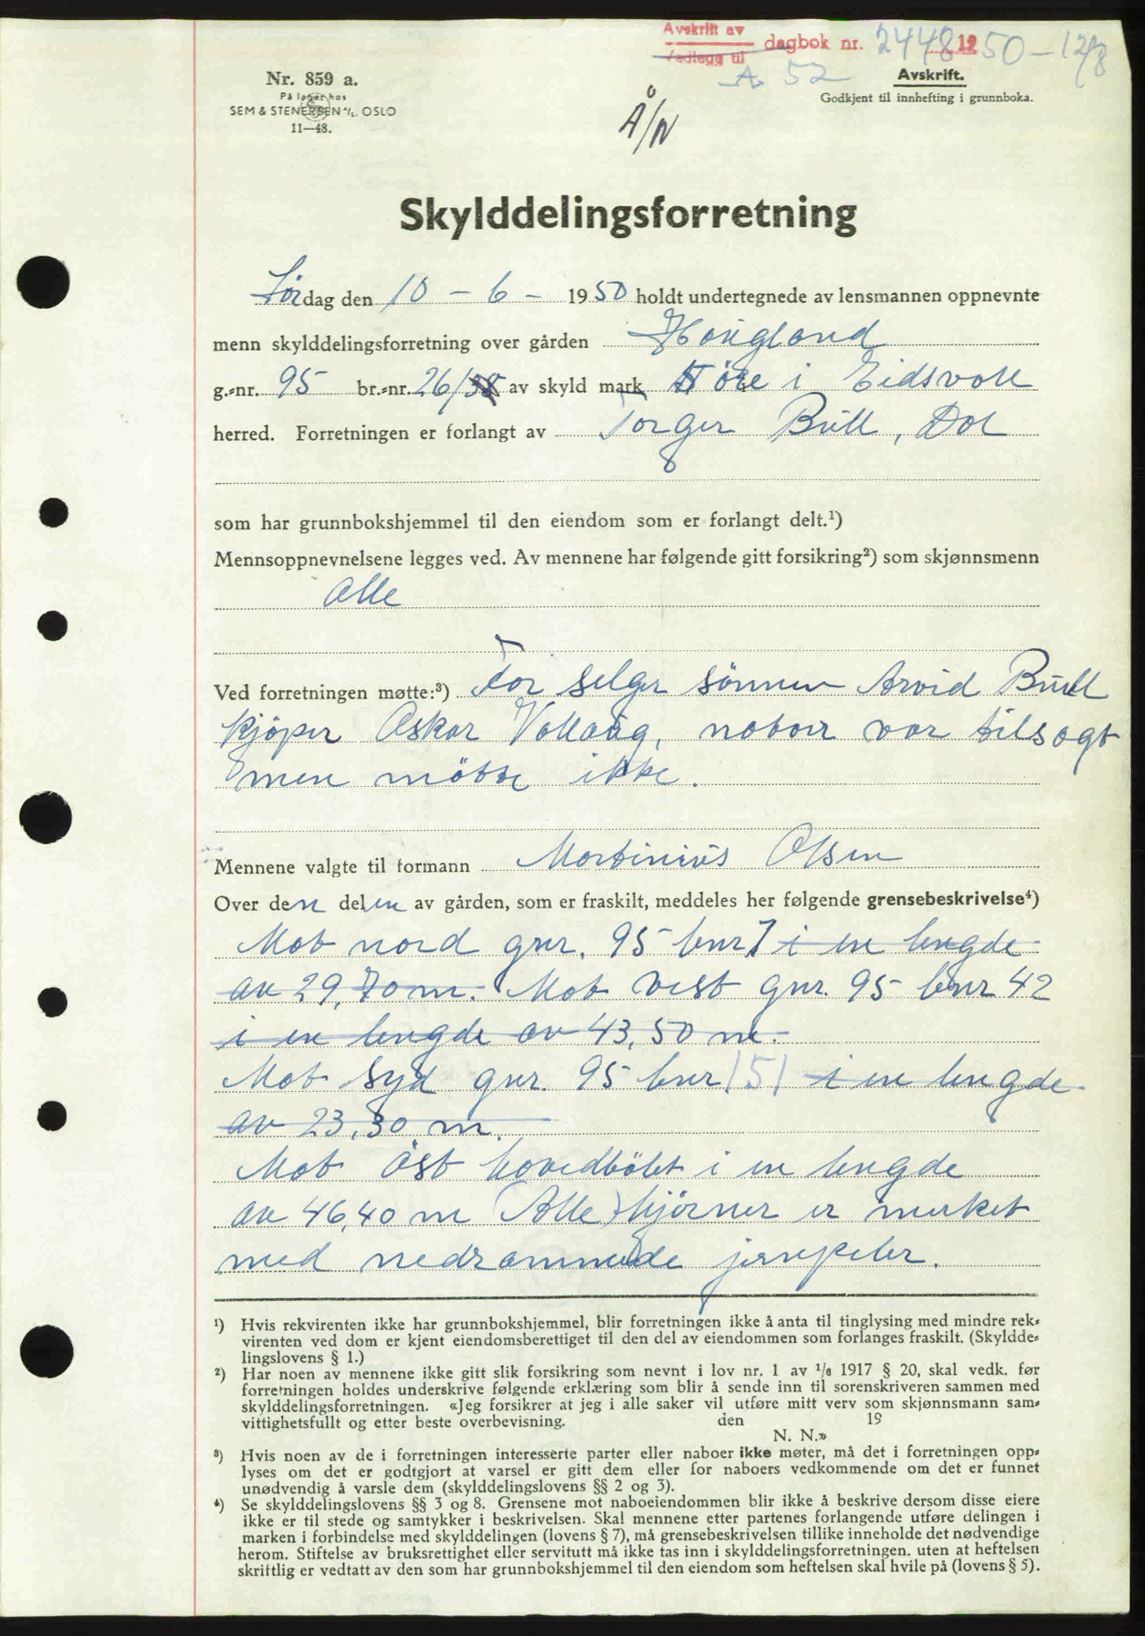 Avskrift av
Vedlegg til dagbok nr. 2448 1950-12/8
A 52
Nr. 859 a.
På lager hos
SEM & STENERSEN A/S. OSLO
11—48.
Avskrift.
Godkjent til innhefting i grunnboka.
Å/N
Skylddelingsforretning
Lørdag den 10 - 6 - 1950 holdt undertegnede av lensmannen oppnevnte
menn skylddelingsforretning over gården Haugland
g.-nr. 95 br.-nr. 26 av skyld mark 5 øre i Eidsvoll
herred. Forretningen er forlangt av Torger Bull, Dal
som har grunnbokshjemmel til den eiendom som er forlangt delt.¹)
Mennsoppnevnelsene legges ved. Av mennene har følgende gitt forsikring²) som skjønnsmenn
Alle
Ved forretningen møtte:³) For selger sønnen Arvid Bull
kjøper Oskar Vollaug, naboer var tilsagt
men møtte ikke.
Mennene valgte til formann Martinius Olsen
Over den delen av gården, som er fraskilt, meddeles her følgende grensebeskrivelse⁴)
Mot nord gnr. 95 bnr 7 i en lengde
av 29,70 m. Mot vest gnr. 95 bnr 42
i en lengde av 43,50 m.
Mot syd gnr. 95 bnr 151 i en lengde
av 23,30 m.
Mot øst hovedbølet i en lengde
av 46,40 m (Alle) hjørner er merket
med nedrammede jernpeler.
¹) Hvis rekvirenten ikke har grunnbokshjemmel, blir forretningen ikke å anta til tinglysing med mindre rek-
virenten ved dom er kjent eiendomsberettiget til den del av eiendommen som forlanges fraskilt. (Skyldde-
lingslovens § 1.)
²) Har noen av mennene ikke gitt slik forsikring som nevnt i lov nr. 1 av ¹/₆ 1917 § 20, skal vedk. før
forretningen holdes underskrive følgende erklæring som blir å sende inn til sorenskriveren sammen med
skylddelingsforretningen. «Jeg forsikrer at jeg i alle saker vil utføre mitt verv som skjønnsmann sam-
vittighetsfullt og etter beste overbevisning. den 19
N. N.»
³) Hvis noen av de i forretningen interesserte parter eller naboer ikke møter, må det i forretningen opp-
lyses om det er godtgjort at varsel er gitt dem eller for naboers vedkommende om det er funnet
unødvendig å varsle dem (skylddelingslovens §§ 2 og 3).
⁴) Se skylddelingslovens §§ 3 og 8. Grensene mot naboeiendommen blir ikke å beskrive dersom disse eiere
ikke er til stede og samtykker i beskrivelsen. Skal mennene etter partenes forlangende utføre delingen i
marken i forbindelse med skylddelingen (lovens § 7), må grensebeskrivelsen tillike inneholde det nødvendige
herom. Stiftelse av bruksrettighet eller servitutt må ikke tas inn i skylddelingsforretningen. uten at heftelsen
skriftlig er vedtatt av den som har grunnbokshjemmel til den eiendom som heftelsen skal hvile på (lovens § 5).